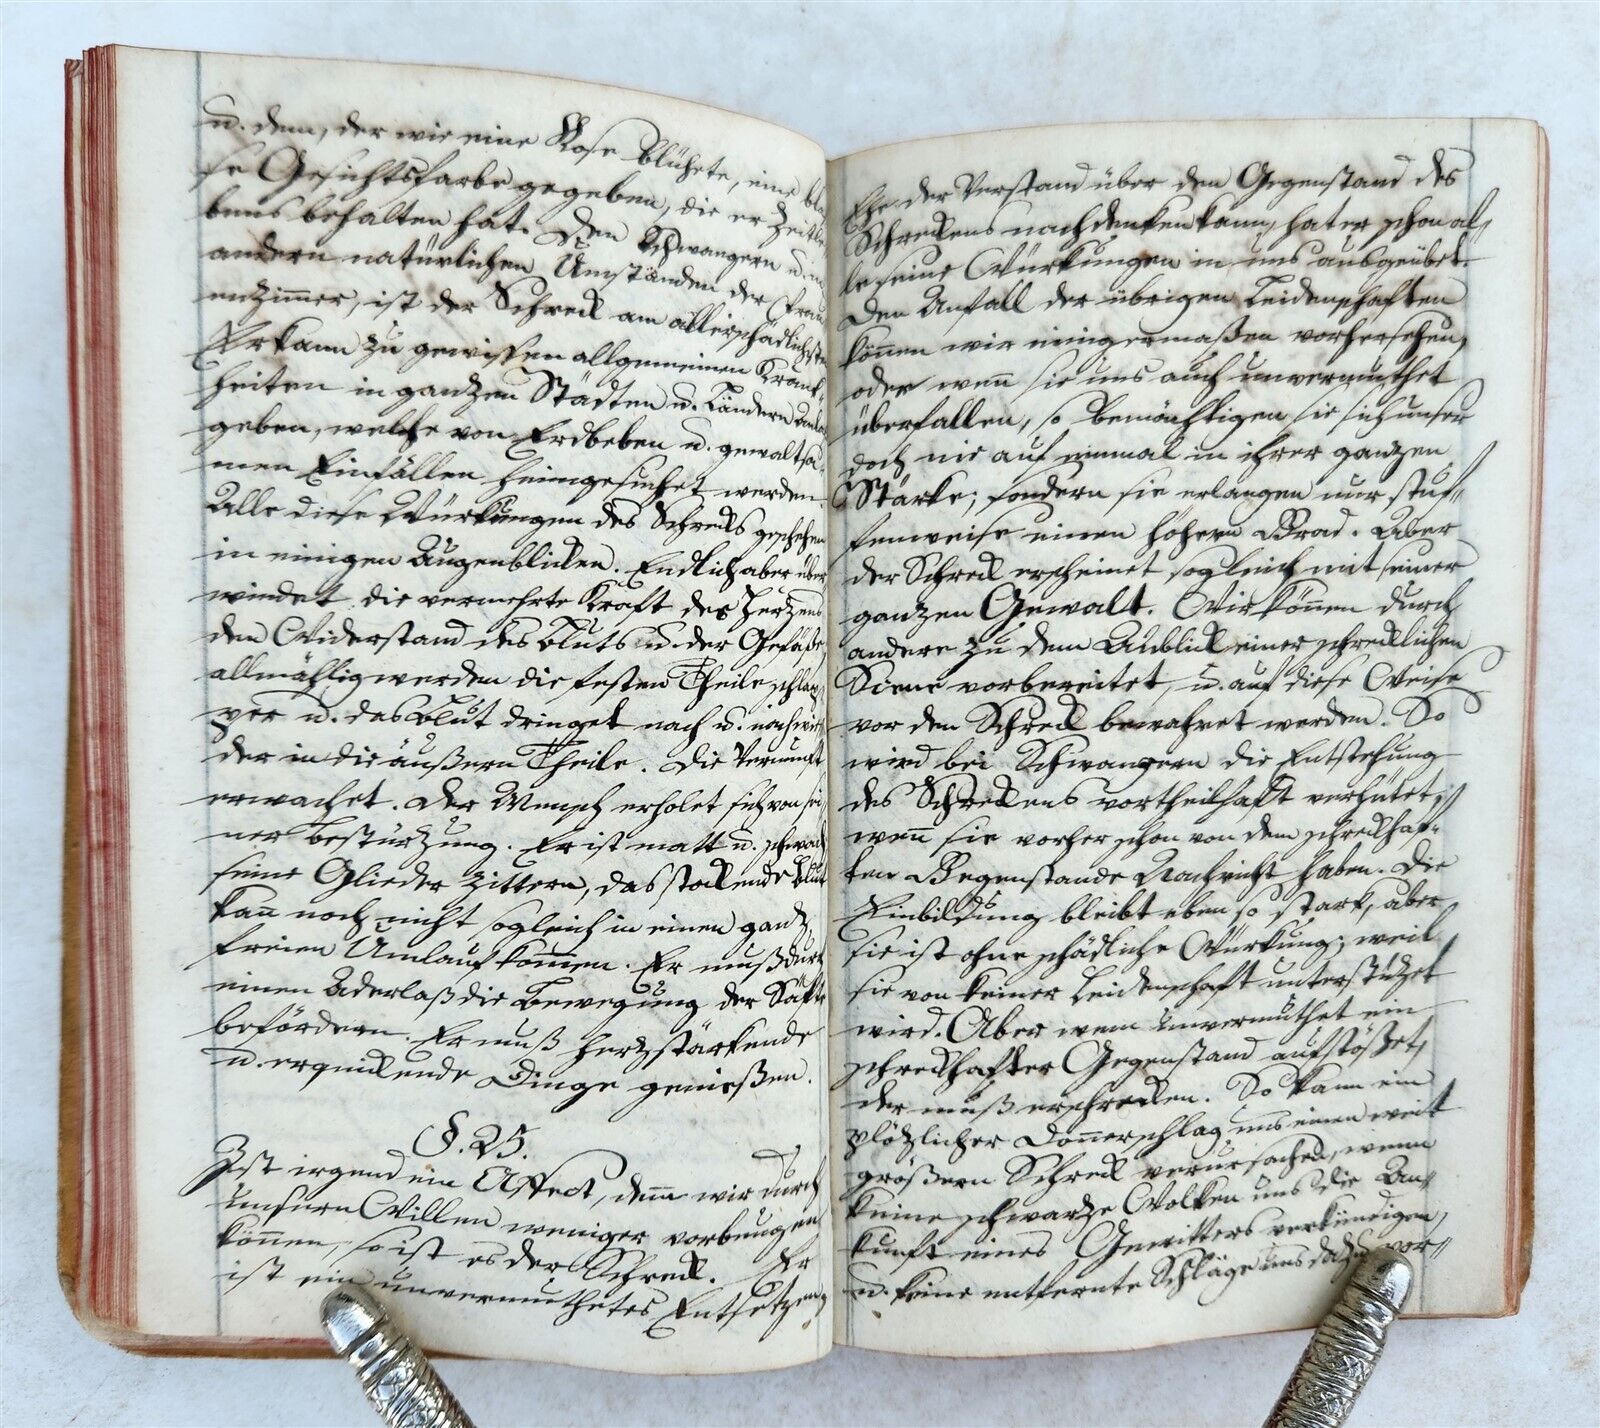 u. dem, der wie eine Rose blühete, eine bla
ße Gesichtsfarbe gegeben, die er Zeitle
bens behalten hat. Den Schwangern u. in
andern natürlichen Umständen der Frau
enzimmer, ist der Schreck am allerschädlichsten
Er kann zu gewissen allgemeinen Krank-
heiten in ganzen Städten u. Ländern Anlas
geben, welche von Erdbeben u. gewaltsa-
men Einfällen heimgesuchet werden.
Alle diese Würkungen des Schrecks geschehen
in einigen Augenblicken. Endlich aber über
windet die vermehrte Kraft des Herzens
den Widerstand des Bluts u. der Gefäße,
allmählig werden die festen Theile schlap
per u. das Blut dringet nach u. nach wie
der in die äußern Theile. Die Vernunft
erwachet. Der Mensch erholet sich von sei
ner Bestürzung. Er ist matt u. schwach
seine Glieder zittern, das stockende Blut
kan̄ noch nicht sogleich in einen ganz
freien Umlauf kom̄en. Er muß durch
einen Aderlaß die Bewegung der Säfte
befördern. Er muß herzstärkende
u. erquickende Dinge genießen.
§. 25.
Ist irgend ein Affect, dem wir durch
unsern Willen weniger vorbeugen
können, so ist es der Schreck. Er
ist ein unvermuthetes Entsetzen,
Ehe der Verstand über den Gegenstand des
Schreckens nachdenken kann, hat er schon al-
le seine Würkungen in uns ausgeübet.
Den Anfall der übrigen Leidenschaften
können wir einigermaßen vorhersehen,
oder wen̄ sie uns auch unvermuthet
überfallen, so bemächtigen sie sich unser
doch nie auf einmal in ihrer ganzen
Stärke; sondern sie erlangen nur stuf-
fenweise einen höhern Grad. Aber
der Schreck erscheinet sogleich mit seiner
ganzen Gewalt. Wir können durch
andere zu dem Anblick einer schrecklichen
Scene vorbereitet, u. auf diese Weise
vor den Schreck bewahret werden. So
wird bei Schwangern die Entstehung
des Schreckens vortheilhaft verhütet,
wen̄ sie vorher schon von dem schreckhaf-
ten Gegenstande Nachricht haben. Die
Einbildung bleibt eben so stark, aber
sie ist ohne schädliche Würkung; weil
sie von keiner Leidenschaft unterstützet
wird. Aber wem unvermuthet ein
schreckhafter Gegenstand aufstößet,
der muß erschrecken. So kann ein
plötzlicher Don̄erschlag uns einen weit
größern Schreck verursachen, wenn
keine schwarze Wolken uns die An-
kunft eines Gewitters verkündigen,
u. keine entfernte Schläge uns dazu vor-